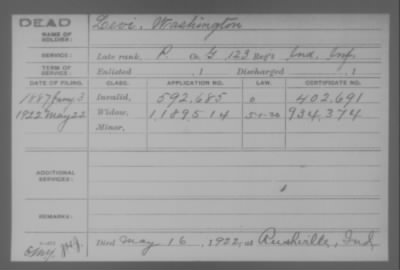 DEAD
NAME OF SOLDIER: Levi, Washington
SERVICE: Late rank, P Co. G, 123 Reg't Ind. Inf.
TERM OF SERVICE: Enlisted , 1 Discharged , 1
DATE OF FILING. CLASS. APPLICATION NO. LAW. CERTIFICATE NO.
1887 Jany. 3 Invalid, 592,685 0 402,691
1922 May 22 Widow, 1,189514 5-1-20 934,374
Minor,
ADDITIONAL SERVICES:
REMARKS:
Died May 16, 1922, at Rushville, Ind.